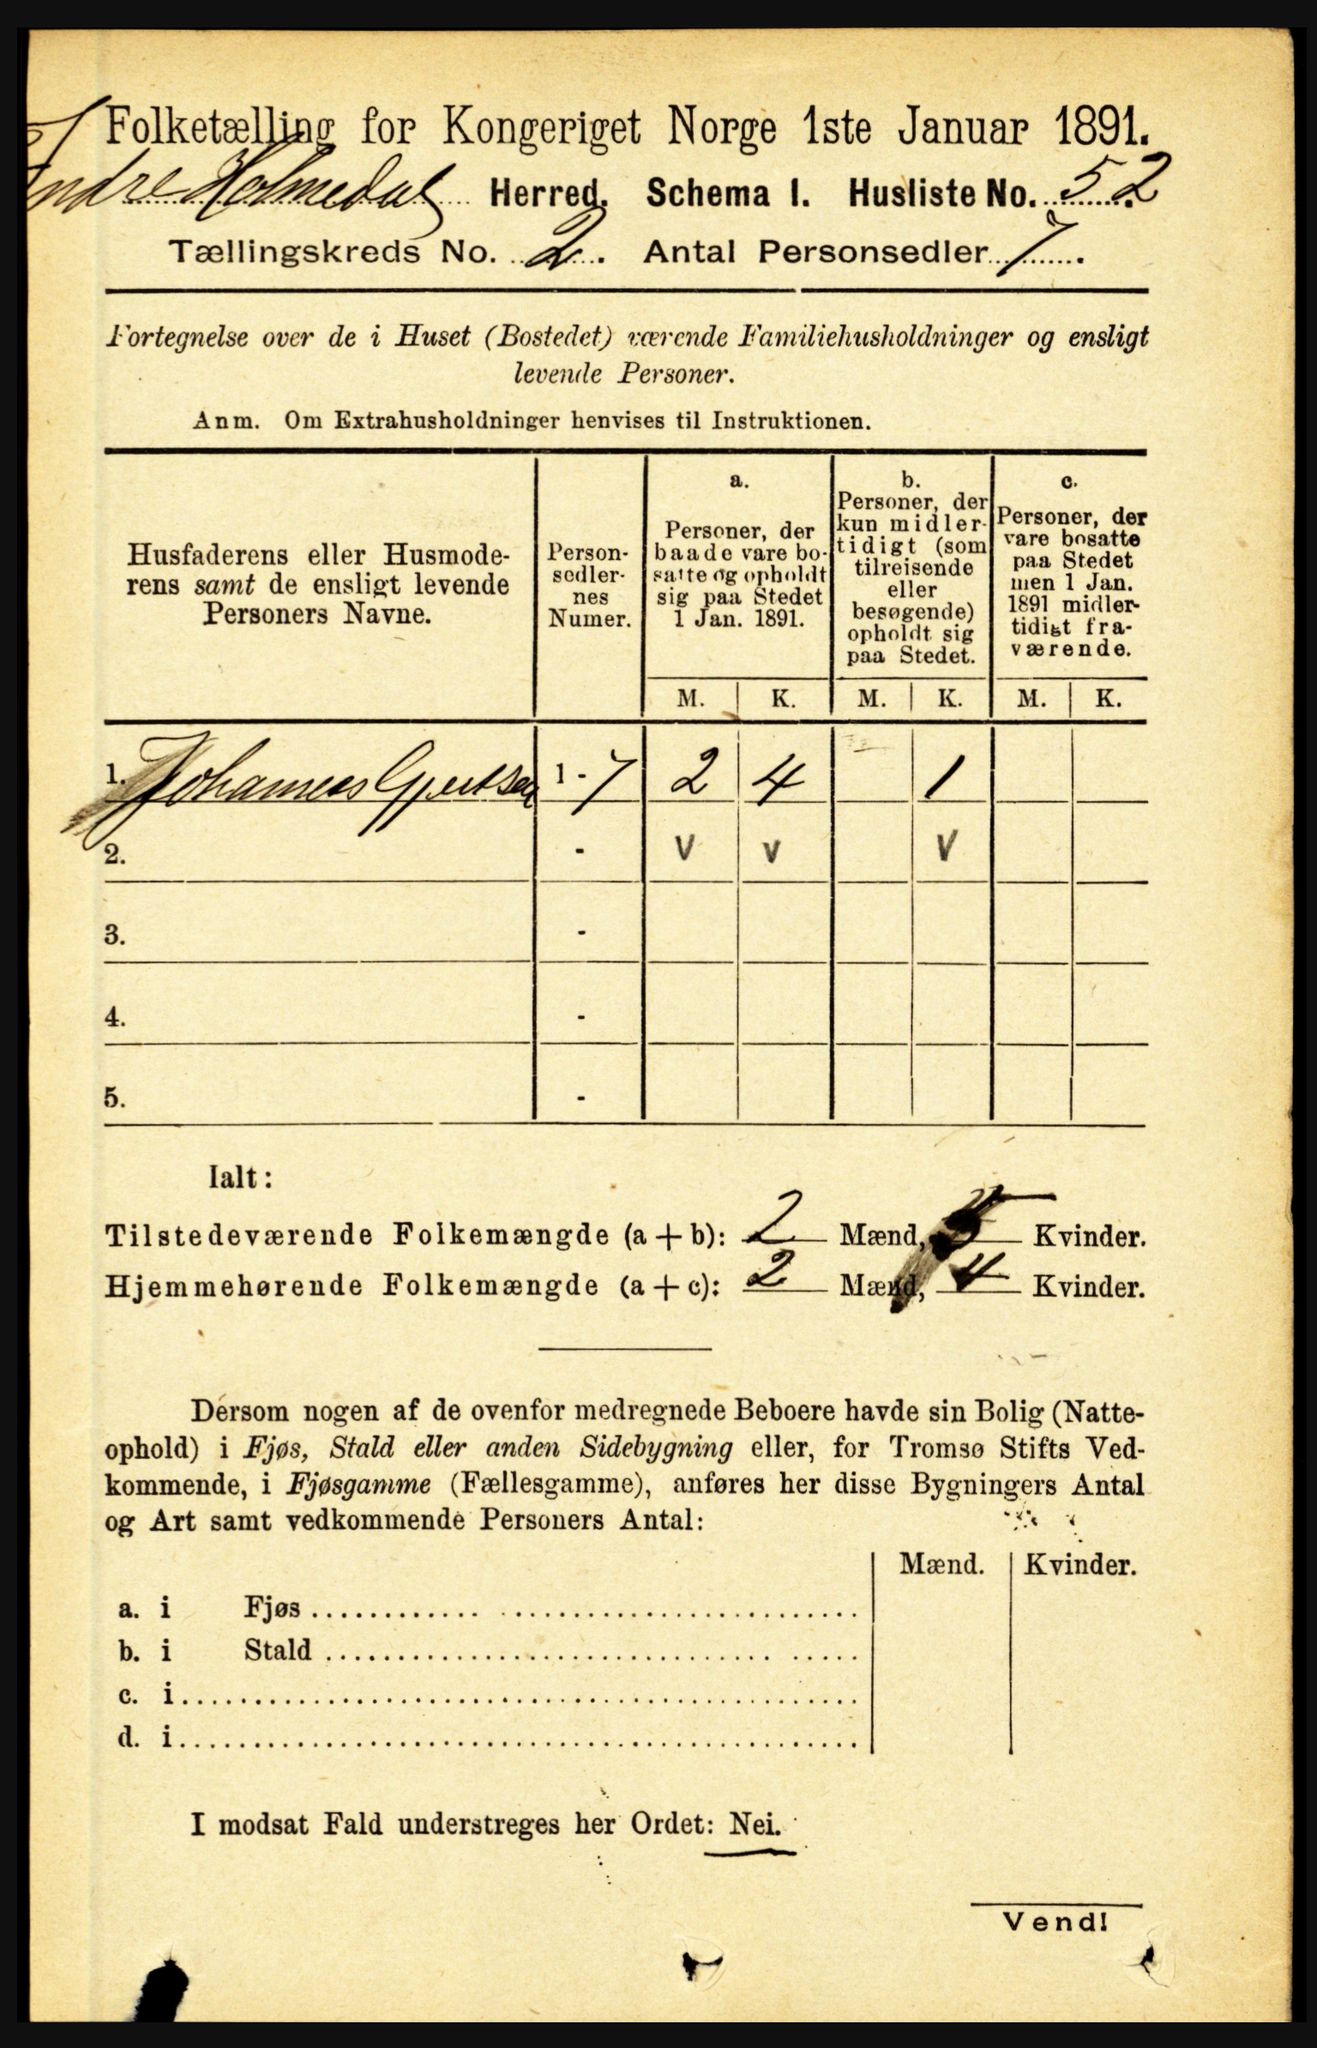 Folketælling for Kongeriget Norge 1ste Januar 1891.
Indre Holmedal Herred. Schema I. Husliste No. 52
Tællingskreds No. 2. Antal Personsedler 7.
Fortegnelse over de i Huset (Bostedet) værende Familiehusholdninger og ensligt
levende Personer.
Anm. Om Extrahusholdninger henvises til Instruktionen.
Husfaderens eller Husmode-
rens samt de ensligt levende
Personers Navne.
Person-
sedler-
nes
Numer.
a.
Personer, der
baade vare bo-
satte og opholdt
sig paa Stedet
1 Jan. 1891.
b.
Personer, der
kun midler-
tidigt (som
tilreisende
eller
besøgende)
opholdt sig
paa Stedet.
c.
Personer, der
vare bosatte
paa Stedet
men 1 Jan.
1891 midler-
tidigt fra-
værende.
M. K. M. K. M. K.
1. Johannes Gjertsen 1 - 7 2 4 1
2. - v v v
3. -
4. -
5. -
Ialt:
Tilstedeværende Folkemængde (a + b): 2 Mænd, 5 Kvinder.
Hjemmehørende Folkemængde (a + c): 2 Mænd, 4 Kvinder.
Dersom nogen af de ovenfor medregnede Beboere havde sin Bolig (Natte-
ophold) i Fjøs, Stald eller anden Sidebygning eller, for Tromsø Stifts Ved-
kommende, i Fjøsgamme (Fællesgamme), anføres her disse Bygningers Antal
og Art samt vedkommende Personers Antal:
Mænd. Kvinder.
a. i Fjøs
b. i Stald
c. i
d. i
I modsat Fald understreges her Ordet: Nei.
Vend!